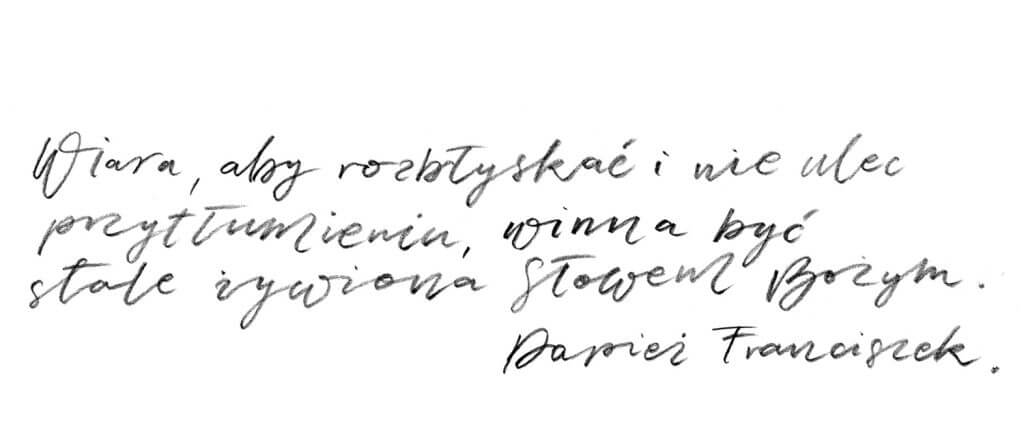 Wiara, aby rozbłyskać i nie ulec
przytłumieniu, winna być
stale żywiona Słowem Bożym.
Papież Franciszek.